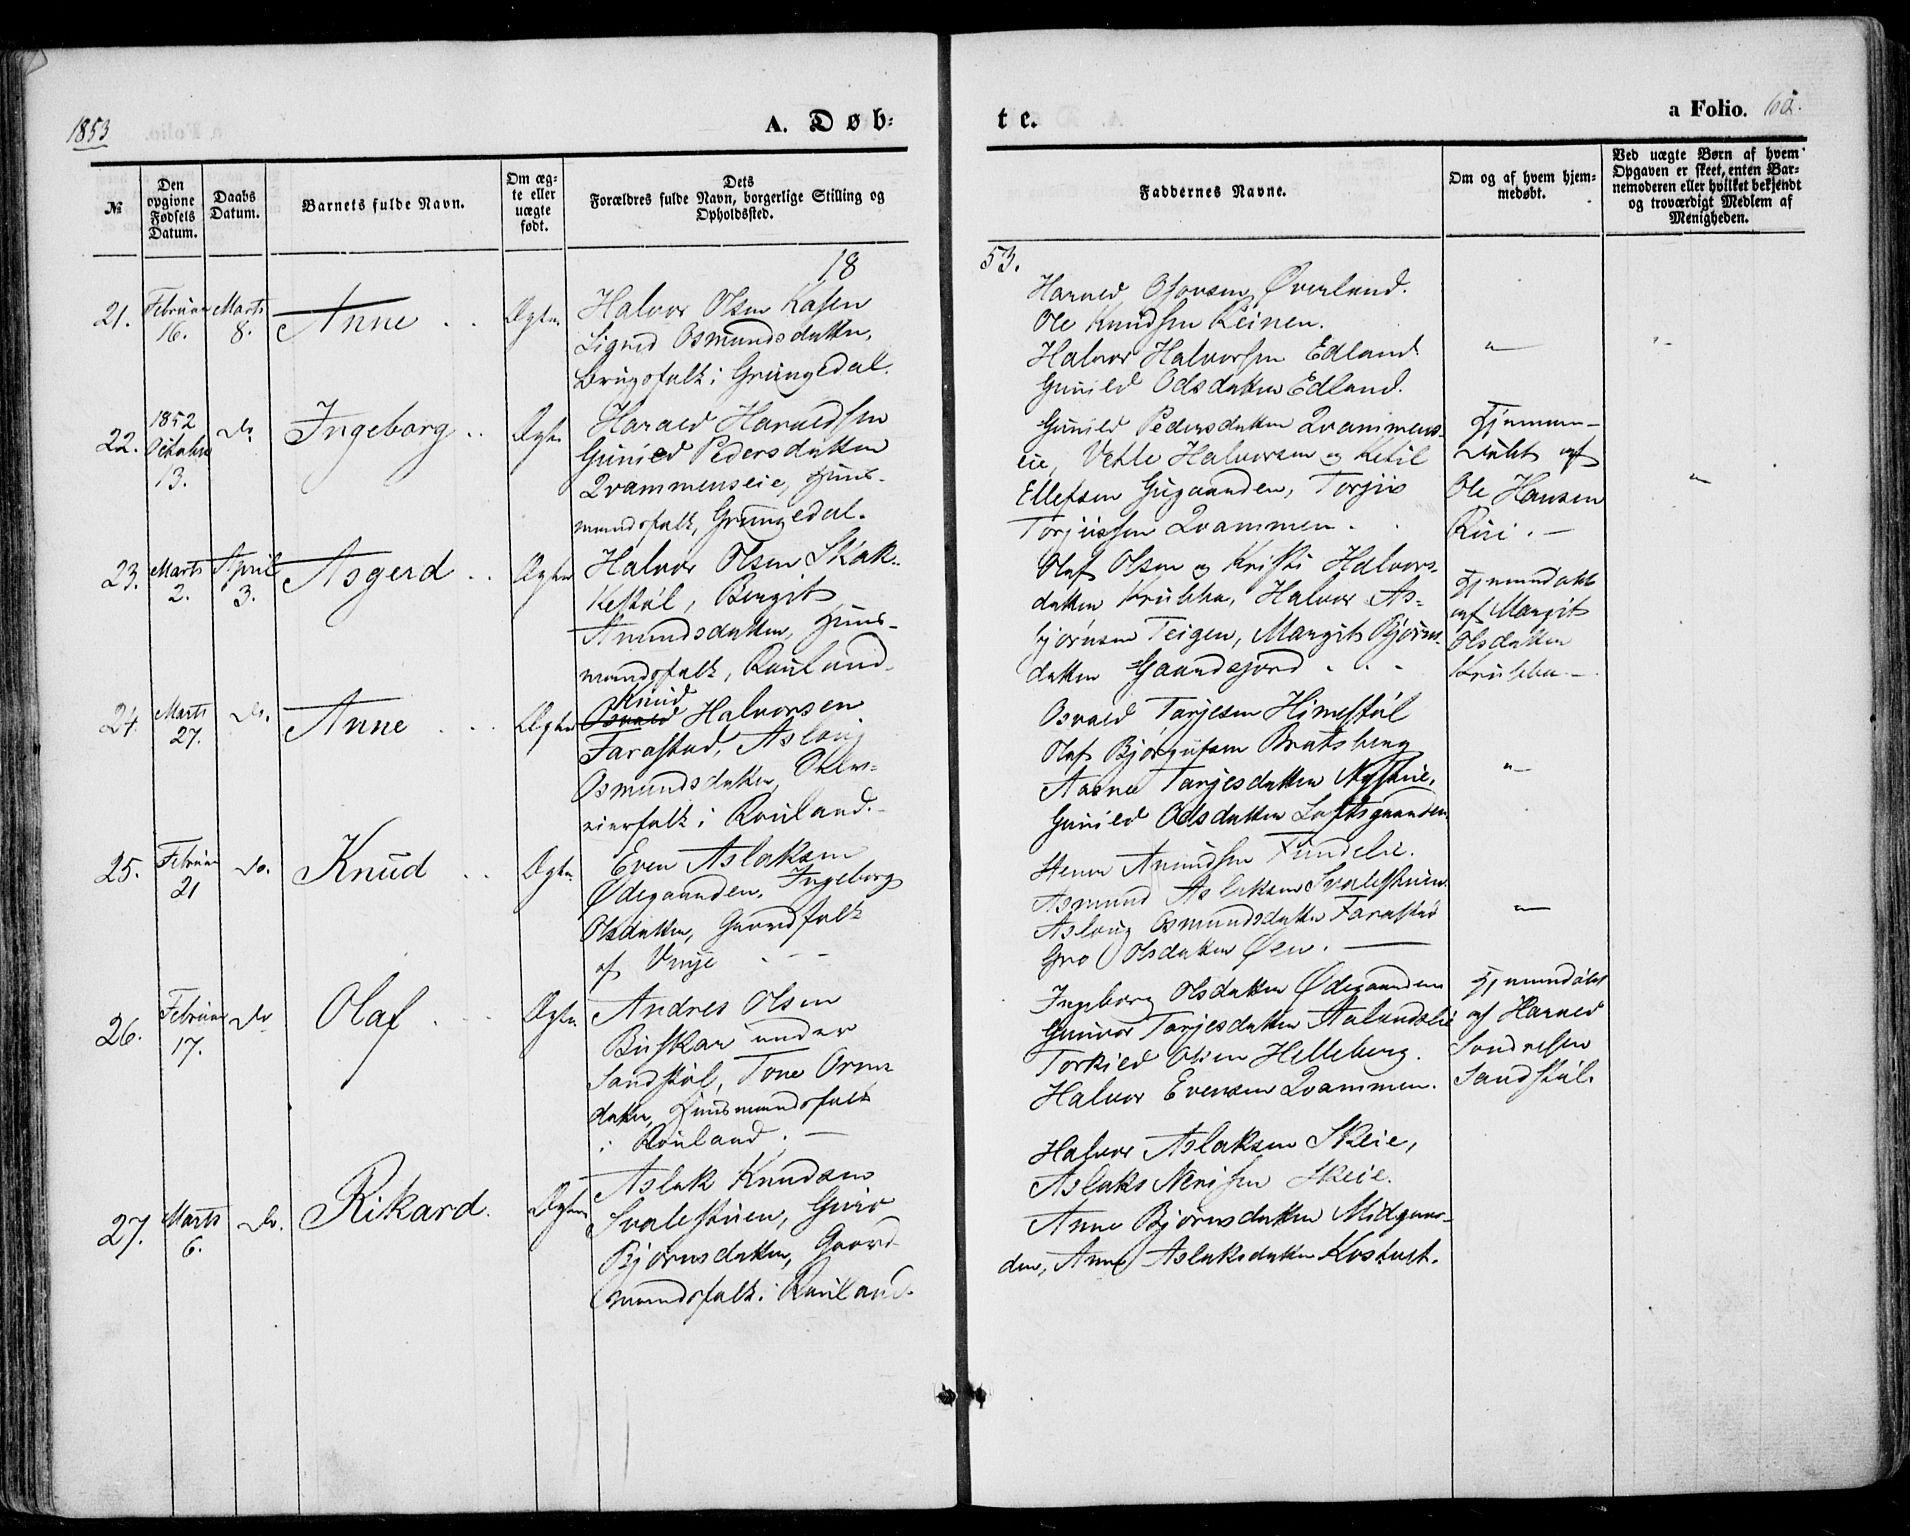 1853
A. Døb-
te.
a Folio.
№
Den opgivne Fødsels Datum.
Daabs Datum.
Barnets fulde Navn.
Om ægte eller uægte født.
Dets Forældres fulde Navn, borgerlige Stilling og Opholdssted.
Faddernes Navne.
Om og af hvem hjemmedøbt.
Ved uægte Børn af hvem Opgaven er skeet, enten Barnemoderen eller hvilket bekjendt og troværdigt Medlem af Menigheden.
18
53.
21.
Februar 16.
Marts 8.
Anne
Ægte
Halvor Olsen
Osmundsdatter,
Brugsfolk i Grungedal.
Øverland.
Ole Knudsen Reinen.
Halvor Halvorsen Edland
Gunild Odsdatter Edland.
22.
1852
Oktober
13.
Do
Ingeborg
Ægte
Harald Haraldsen
Gunild Pedersdatter
Qvammenseie, Huus-
mandsfolk, Grungedal.
Gunild Pedersdatter Qvammens-
eie, Vetle Halvorsen og Ketil
Ellefsen Torjus
Torjussen Qvammen.
Hjemme-
døbt af
Ole Hansen
23.
Marts
2.
April
3.
Asgerd
Ægte
Halvor Olsen
Bergit
Amundsdatter, Huus-
mandsfolk, Rauland.
Olaf Olsen og Kristi Halvors-
datter Krubba, Halvor As-
bjørnsen Teigen, Margit Bjørns-
datter Gaardsjord
Hjemmedøbt
af Margit
Olsdatter
Krubba.
24.
Marts
27.
Do.
Anne
Ægte
Knud
Osvald Halvorsen
Farastad, Aslaug
Osmundsdatter,
i Rauland.
Osvald Tarjesen Himestøl
Olaf Bjørgufsen Bratsberg
Aasne Tarjesdatter
Gunild Odsdatter Loftsgaarden
25.
Februar
21
Do.
Knud
Ægte
Even Aslaksen
Ødegaarden, Ingeborg
Olsdatter, Gaardfolk
af Vinje
Amundsen
Asmund Aslaksen Svalestuen
Aslaug Osmundsdatter Farastad
Gro Olsdatter Øen.
26.
Februar
17.
Do
Olaf
Ægte
Andres Olsen
Buskar under
Sandstøl, Tone Orms
datter, Huusmandsfolk
i Rauland.
Ingeborg Olsdatter Ødegaarden
Gunvor Tarjesdatter Aalandslie
Torkild Olsen Helleberg.
Halvor Evensen Qvammen.
Hjemmedøbt
af Harald
Sondresen
Sandstøl.
27.
Marts
6.
Do.
Rikard.
Ægte
Aslak Knudsen
Svalestuen, Guro
Bjørnsdatter, Gaard
mandsfolk i Rauland.
Halvor Aslaksen Skeie,
Aslak Nerisen Skeie.
Anne Bjørnsdatter Midgaar-
den, Anne Aslaksdatter Kostveit.